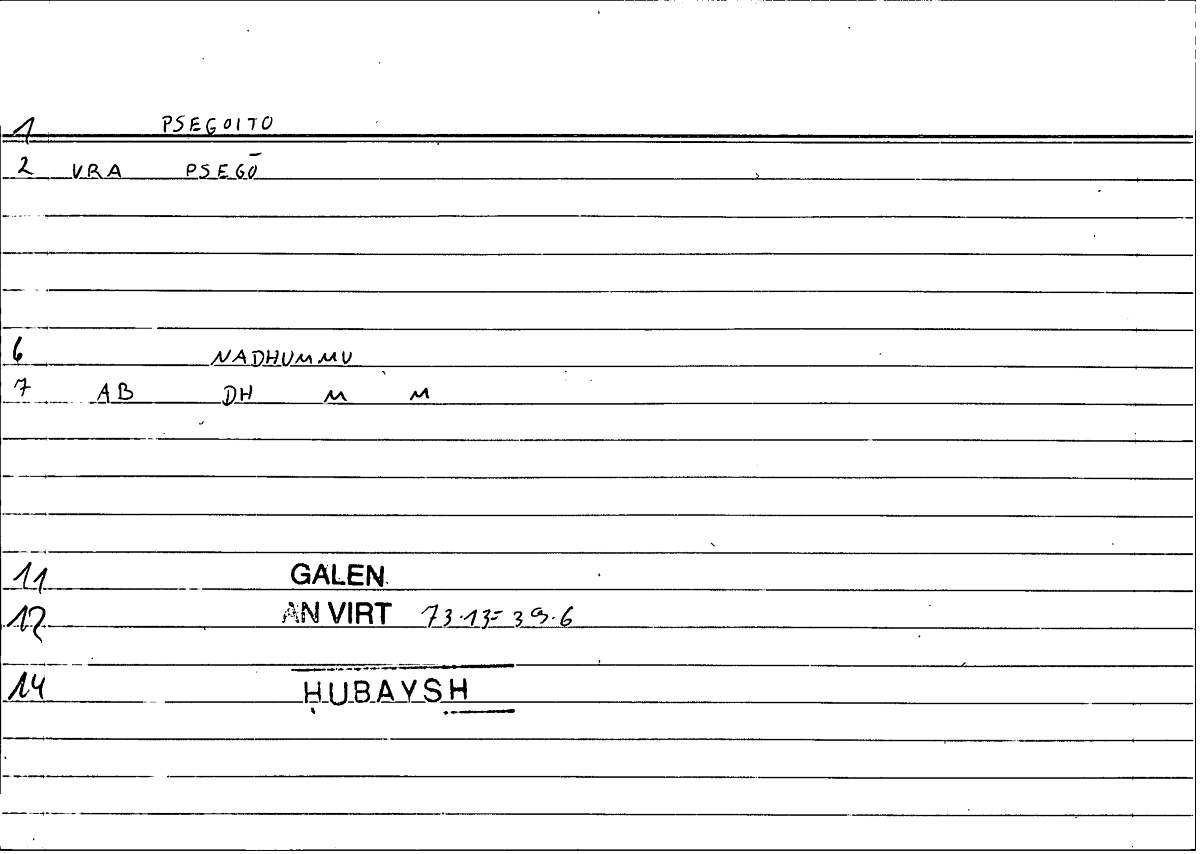 1 PSEGOITO
2 VRA PSEGŌ
6 NADHUMMU
7 AB DH M M
11 GALEN
12 AN VIRT 73.13 = 39.6
14 HUBAYSH